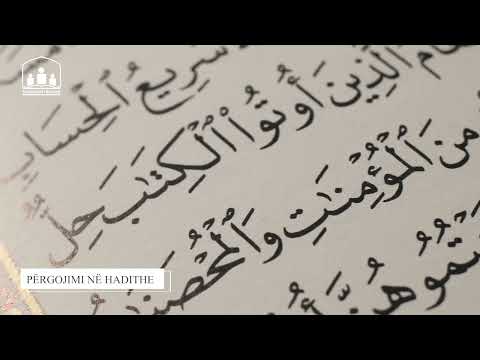 سَرِيعُ ٱلْحِسَابِ
ٱلَّذِينَ أُوتُوا۟ ٱلْكِتَٰبَ حِلٌّ
مِنَ ٱلْمُؤْمِنَٰتِ وَٱلْمُحْصَنَٰ
تُمُوهُنَّ
PËRGOJIMI NË HADITHE